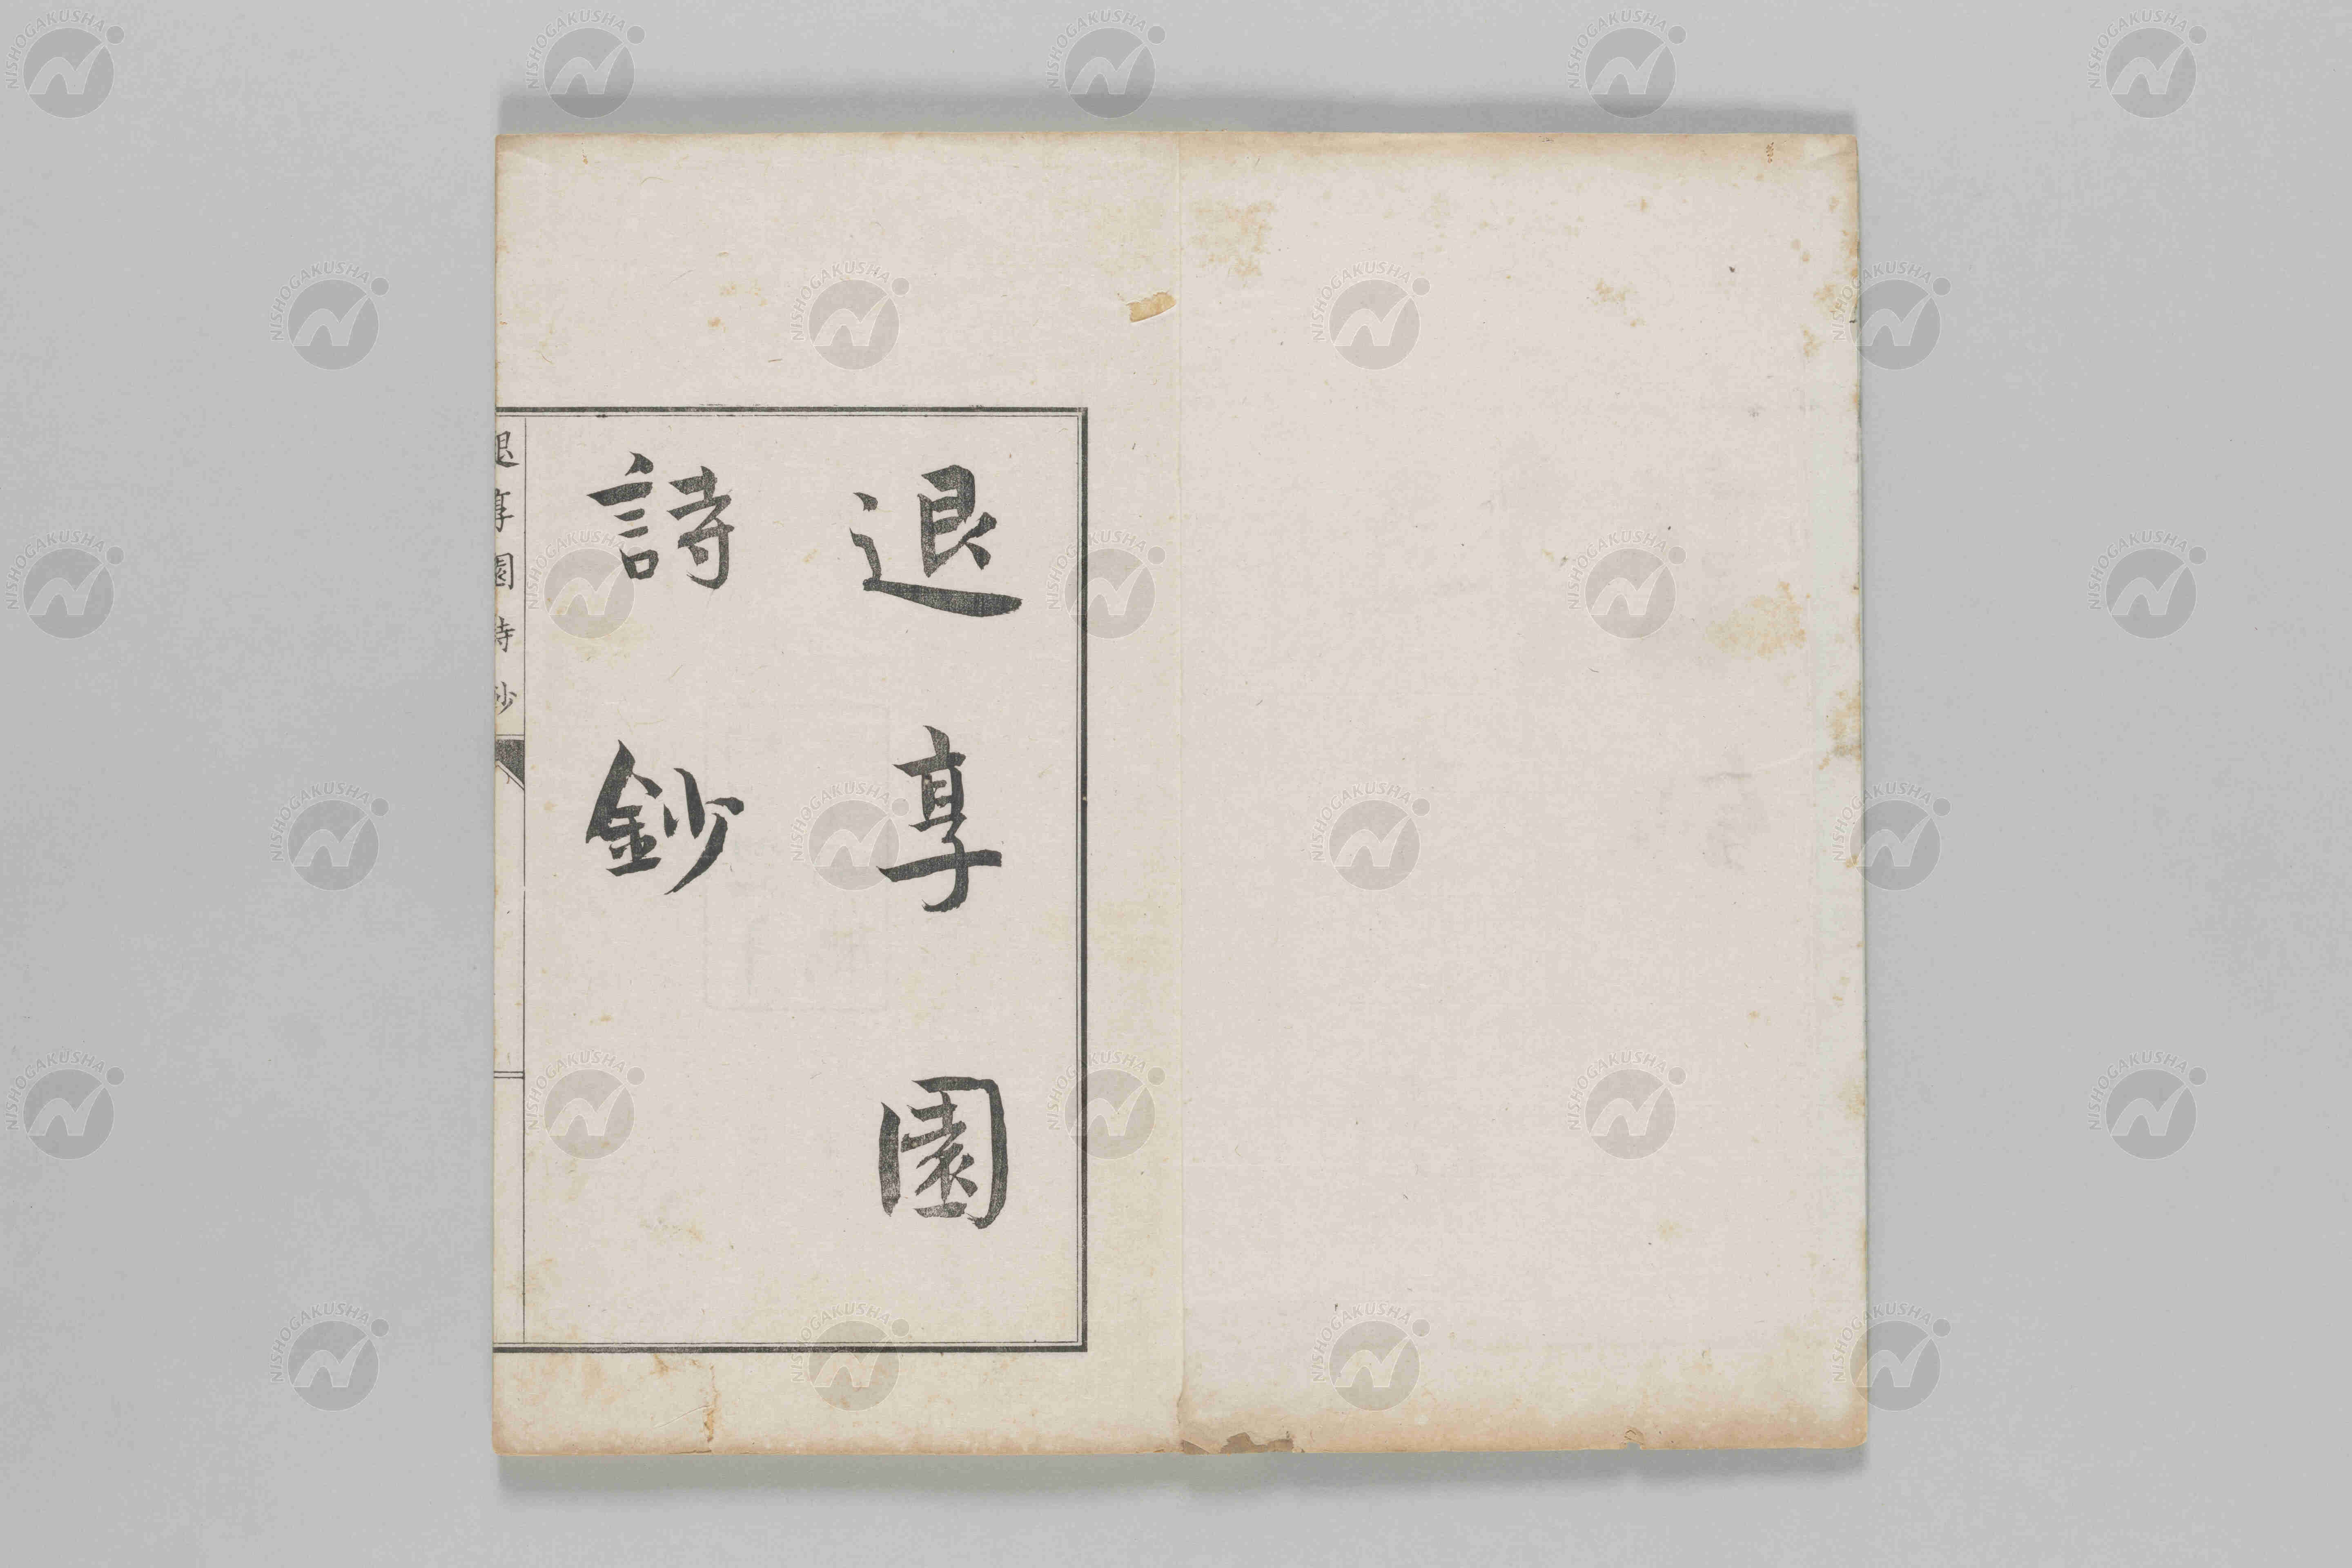 退享園
詩鈔
退享園詩鈔
NISHOGAKUSHA